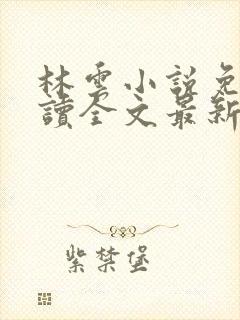 林雲小說免
讀全文最新
紫禁堡